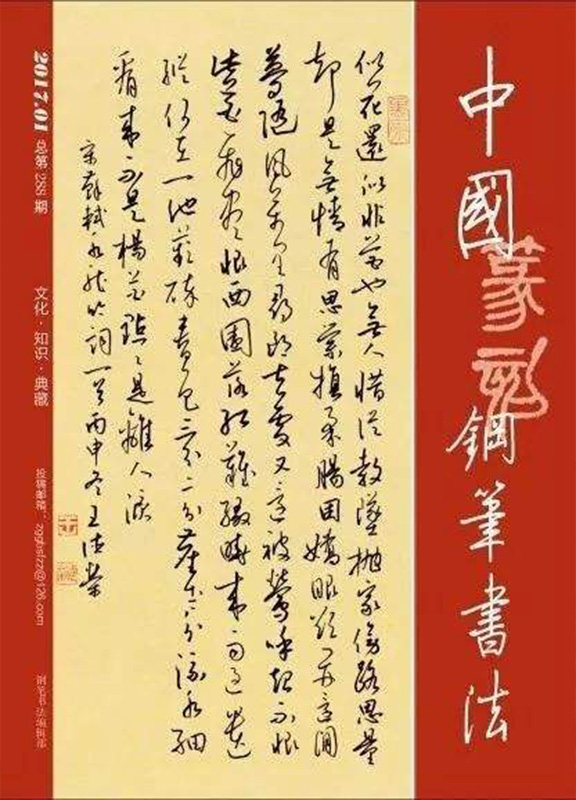 中國鋼筆書法
篆刻
似花還似非花也無人惜從教墜拋家傍路思量
却是無情有思縈損柔腸困嬌眼欲開還閉
夢隨風萬里尋郎去處又還被鶯呼起不恨
此花飛盡恨西園落紅難綴曉來雨過遺
蹤何在一池萍碎春色三分二分塵土一分流水細
看來不是楊花點〻是離人淚
宋蘇軾水龍吟詞一首丙申冬王德榮
2017.01 总第 288 期
文化·知识·典藏
投稿邮箱：zggbsfzz@126.com
钢笔书法编辑部